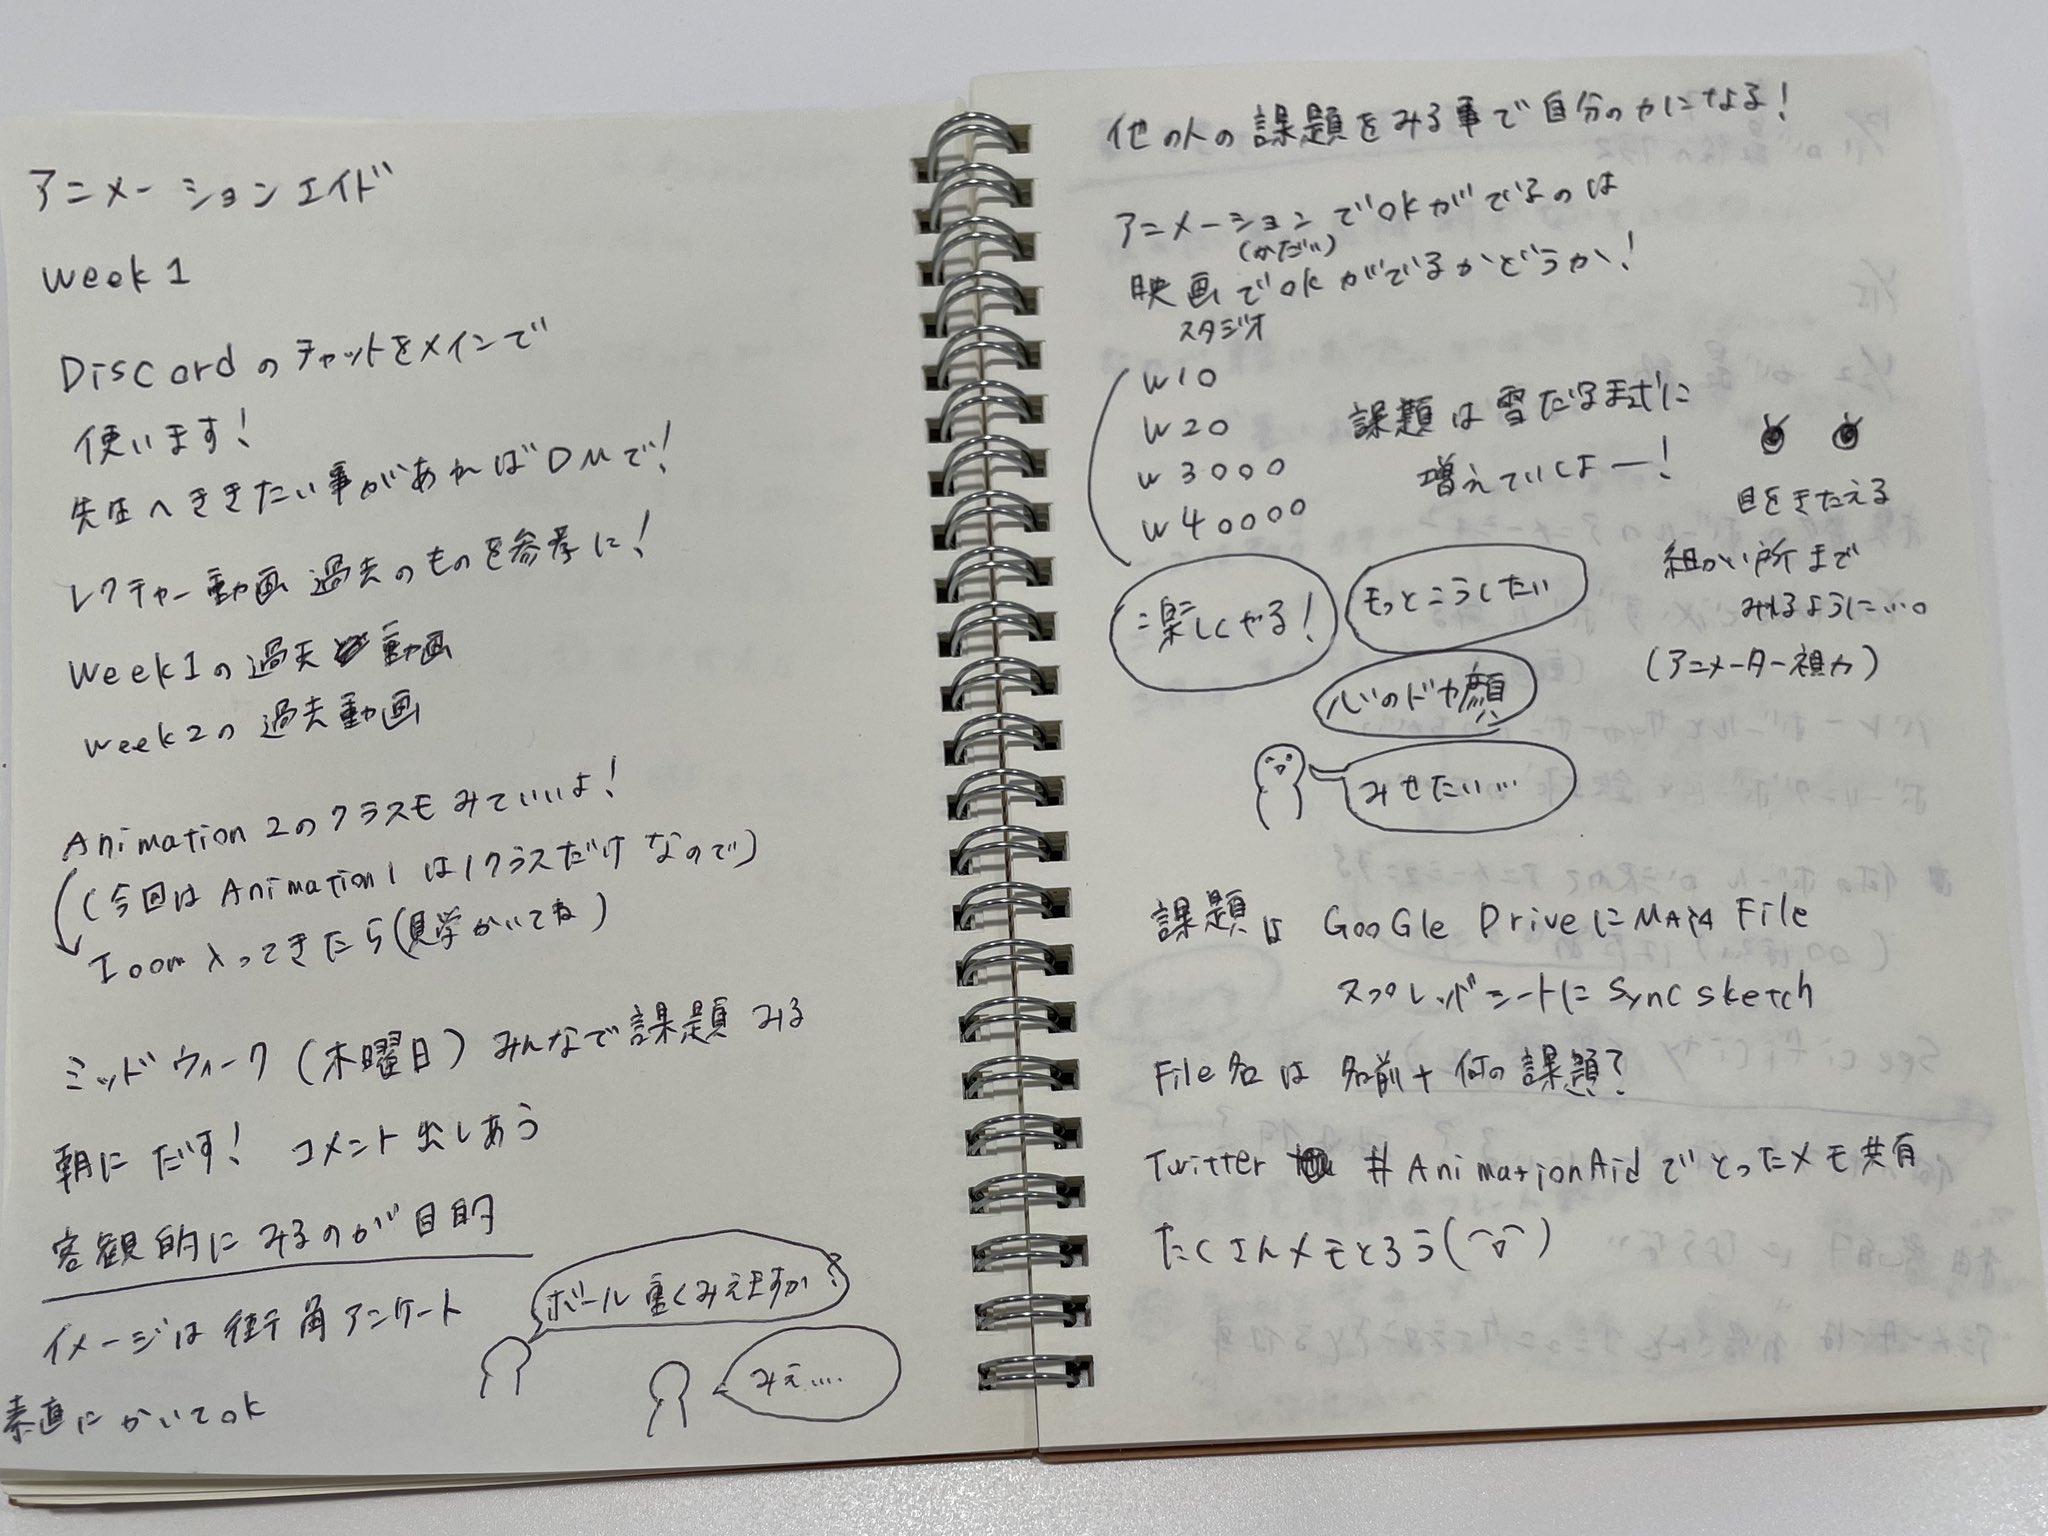 アニメーションエイド
week1
Discordのチャットをメインで
使います!
先生へききたい事があればDMで!
レクチャー動画 過去のものを参考に!
week1の過去 動画
week2の過去動画
Animation2のクラスもみていいよ!
(今回はAnimation1は1クラスだけなので)
Zoom入ってきたら(見学かいてね)
ミッドウィーク(木曜日)みんなで課題みる
朝にだす! コメント出しあう
客観的にみるのが目的
イメージは街角アンケート
ボール重くみえますか?
みえ....
素直にかいてOK
他の人の課題をみる事で自分の力になる!
アニメーションでOKがでるのは
(かだい)
映画でOKがでるかどうか!
スタジオ
W10
W20
W3000
W40000
課題は雪だるま式に
増えていくよー!
目をきたえる
細かい所まで
みれるように...
(アニメーター視力)
楽しくやる!
もっとこうしたい
心のドヤ顔
みせたい...
課題は Google DriveにMAYA File
スプレッドシートにSyncsketch
File名は 名前+何の課題?
Twitter #AnimationAidでとったメモ共有
たくさんメモとろう(^o^)